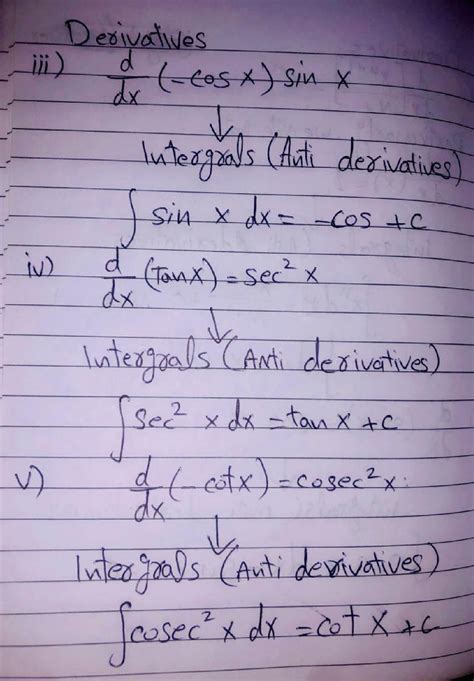 Derivatives
iii) d/dx (-cos x) sin x
↓
Intergrals (Anti derivatives)
∫ sin x dx = -cos + c
iv) d/dx (Tanx) = sec² x
↓
Intergrals (Anti derivatives)
∫ sec² x dx = tan x + c
v) d/dx (-cotx) = cosec² x
↓
Intergrals (Anti derivatives)
∫ cosec² x dx = cot x + c